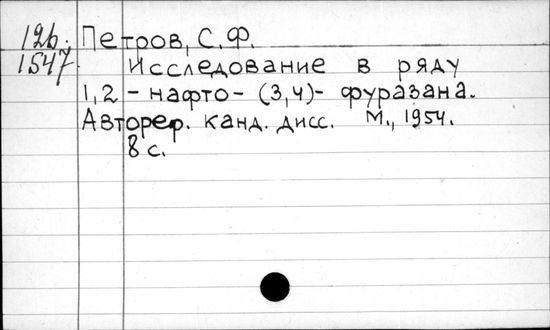 12б.
1547
Петров, С.Ф.
Исследование в ряду
1,2 - нафто - (3,4) - фуразана.
Автореф. канд. дисс. М., 1954.
8 с.